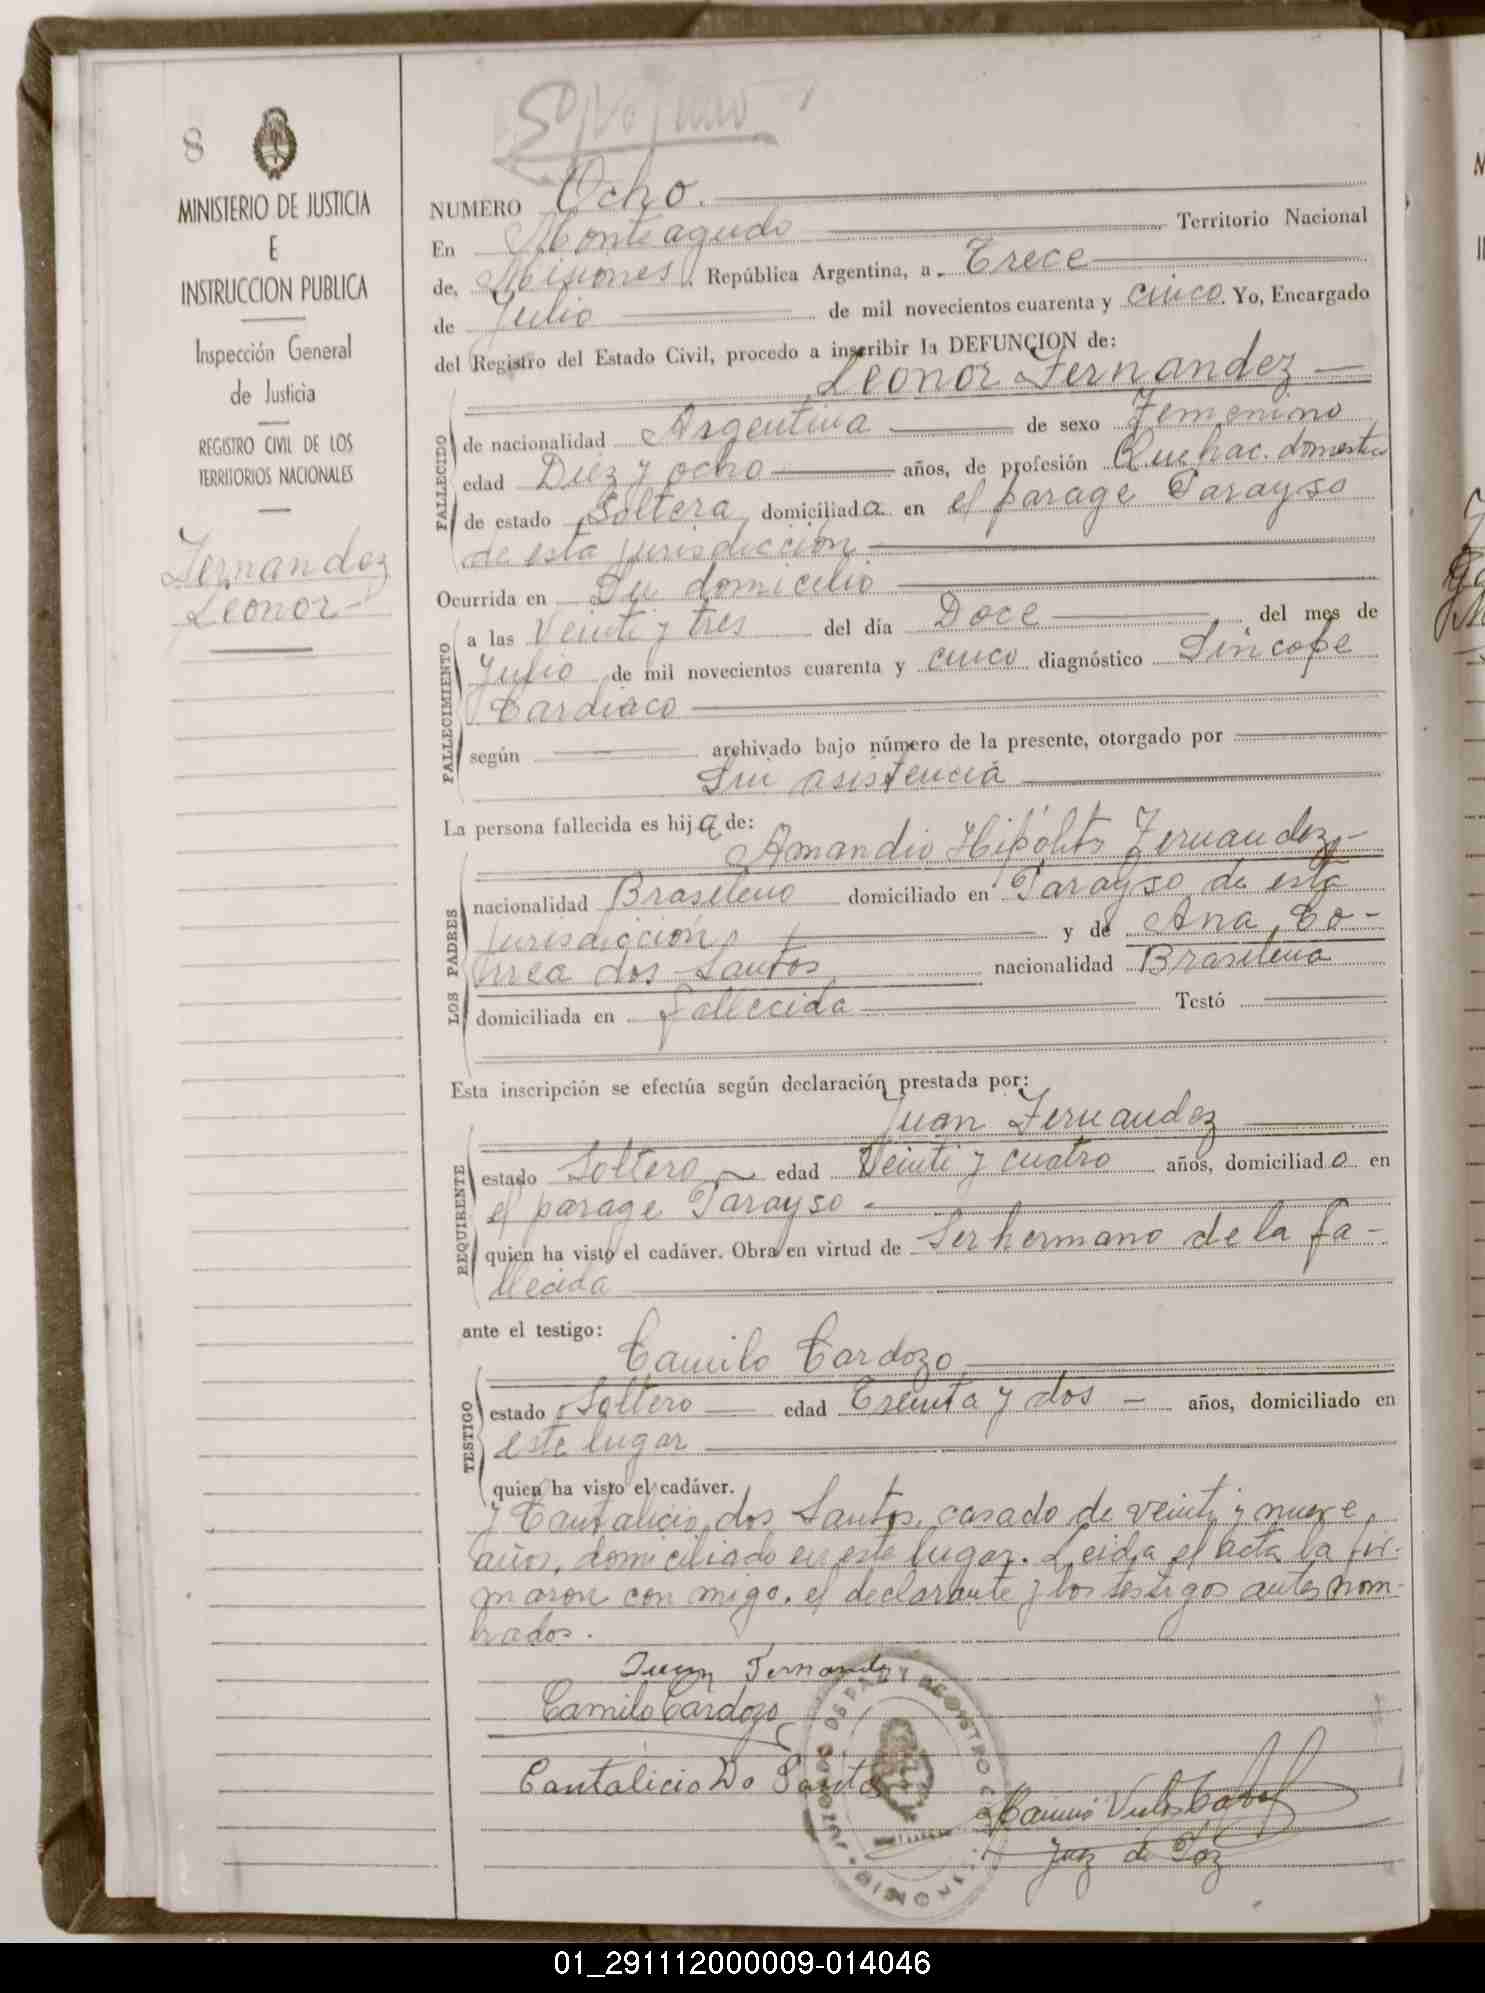 8
MINISTERIO DE JUSTICIA
E
INSTRUCCION PUBLICA
Inspección General
de Justicia
REGISTRO CIVIL DE LOS
TERRITORIOS NACIONALES
Fernandez
Leonor
NUMERO Ocho.
En Monteagudo Territorio Nacional
de, Misiones. República Argentina, a Trece
de Julio de mil novecientos cuarenta y cinco. Yo, Encargado
del Registro del Estado Civil, procedo a inscribir la DEFUNCION de:
Leonor Fernandez
FALLECIDO
de nacionalidad Argentina de sexo Femenino
edad Diez y ocho años, de profesión Quehac. domestic
de estado Soltera domiciliada en el parage Parayso
de esta jurisdicción
Ocurrida en Su domicilio
FALLECIMIENTO
a las Veinte y tres del día Doce del mes de
Julio de mil novecientos cuarenta y cinco diagnóstico Sincope
Cardiaco
según archivado bajo número de la presente, otorgado por
Sin asistencia
La persona fallecida es hija de:
Amandio Hipólito Fernandez
LOS PADRES
nacionalidad Brasileno domiciliado en Parayso de esta
jurisdicción, y de Ana Co-
rrea dos Santos nacionalidad Brasilena
domiciliada en fallecida Testó
Esta inscripción se efectúa según declaración prestada por:
Juan Fernandez
REQUIRENTE
estado Soltero edad Veinte y cuatro años, domiciliado en
el parage Parayso
quien ha visto el cadáver. Obra en virtud de Ser hermano de la fa-
llecida
ante el testigo:
Camilo Cardozo
TESTIGO
estado Soltero edad Treinta y dos años, domiciliado en
este lugar
quien ha visto el cadáver.
y Cantalicio dos Santos, casado de veinte y nueve
años, domiciliado en este lugar. Leida el acta la fir-
maron con migo, el declarante y los testigos antes nom-
brados.
Juan Fernandez
Camilo Cardozo
Cantalicio Do Santos
Juez de Paz
01_291112000009-014046